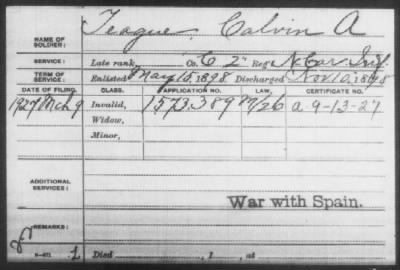 NAME OF SOLDIER: Teague, Calvin A
SERVICE: Late rank, Co. C 2" Reg't N. Car. Inf.
TERM OF SERVICE: Enlisted May 15, 1898 Discharged Nov 10, 1898
DATE OF FILING. CLASS. APPLICATION NO. LAW. CERTIFICATE NO.
1927 Mch 9 Invalid, 1573.389 a 9-13-27
Widow,
Minor,
ADDITIONAL SERVICES:
War with Spain.
REMARKS:
Died , 1 , at